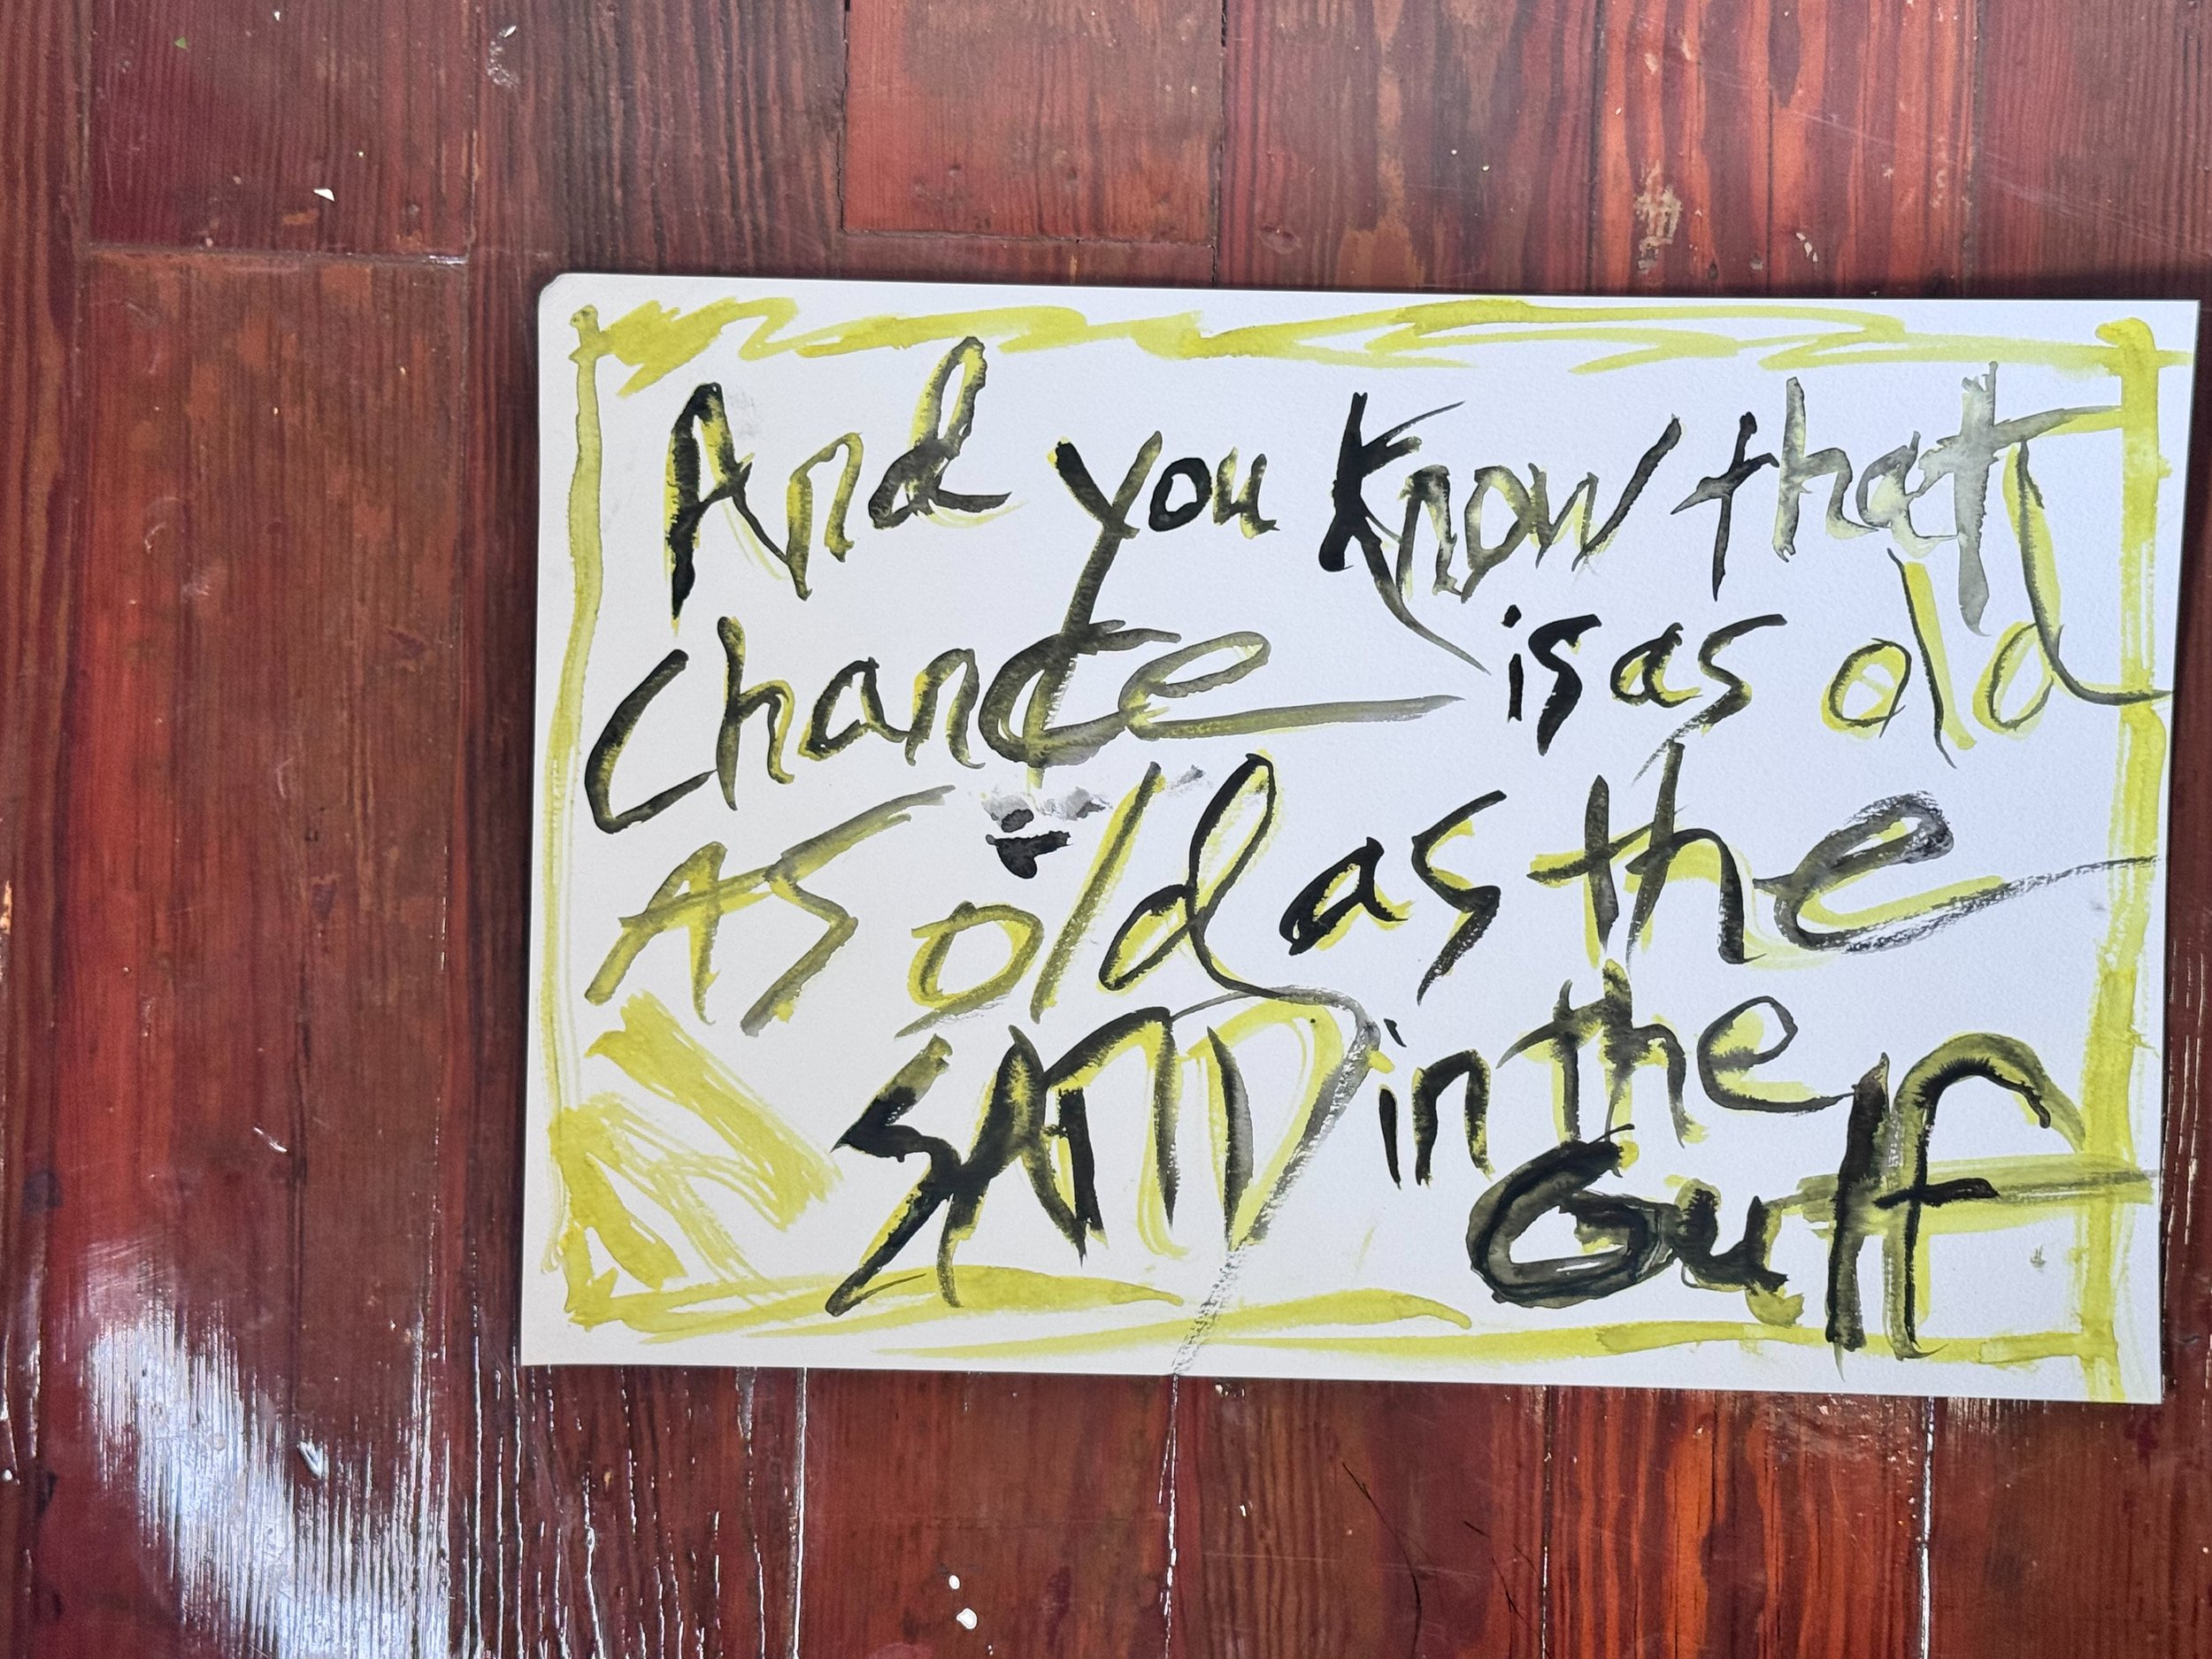 And you Know that
Chance is as old
As old as the
SAND in the
Gulf